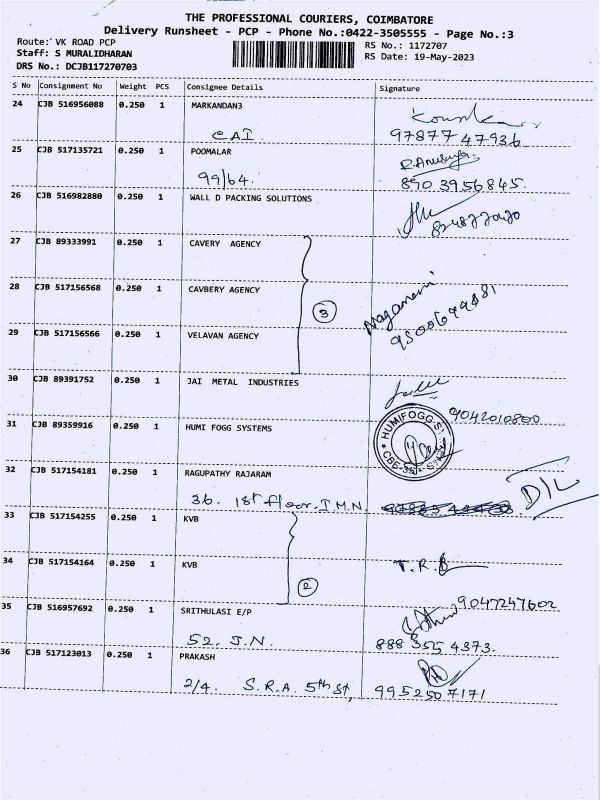 THE PROFESSIONAL COURIERS, COIMBATORE
Delivery Runsheet - PCP - Phone No.:0422-3505555 - Page No.:3
Route: VK ROAD PCP RS No.: 1172707
Staff: S MURALIDHARAN RS Date: 19-May-2023
DRS No.: DCJB117270703
S No Consignment No Weight PCS Consignee Details Signature
24 CJB 516956088 0.250 1 MARKANDAN3
CAI 97877 47936
25 CJB 517135721 0.250 1 POOMALAR
R.Anusuya
99/64. 890 3956845.
26 CJB 516982880 0.250 1 WALL D PACKING SOLUTIONS
27 CJB 89333991 0.250 1 CAVERY AGENCY
28 CJB 517156568 0.250 1 CAVBERY AGENCY
3
29 CJB 517156566 0.250 1 VELAVAN AGENCY
30 CJB 89391752 0.250 1 JAI METAL INDUSTRIES
9042010800
31 CJB 89359916 0.250 1 HUMI FOGG SYSTEMS
32 CJB 517154181 0.250 1 RAGUPATHY RAJARAM
36. 1st floor. T.M.N. D/L
33 CJB 517154255 0.250 1 KVB
34 CJB 517154164 0.250 1 KVB T.R.B
2
9047247602
35 CJB 516957692 0.250 1 SRITHULASI E/P
52. J.N. 888 355 4373.
36 CJB 517123013 0.250 1 PRAKASH
2/4. S.R.A. 5th St, 9952507171